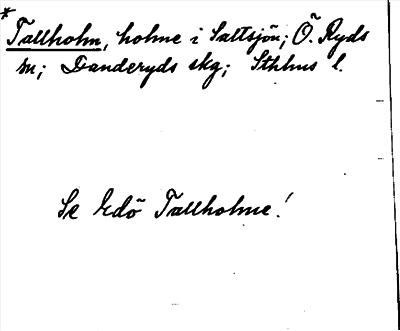 * Tallholm, holme i Saltsjön; Ö. Ryds
sn; Danderyds skg; Sthlms l.
Se Edö Tallholme!